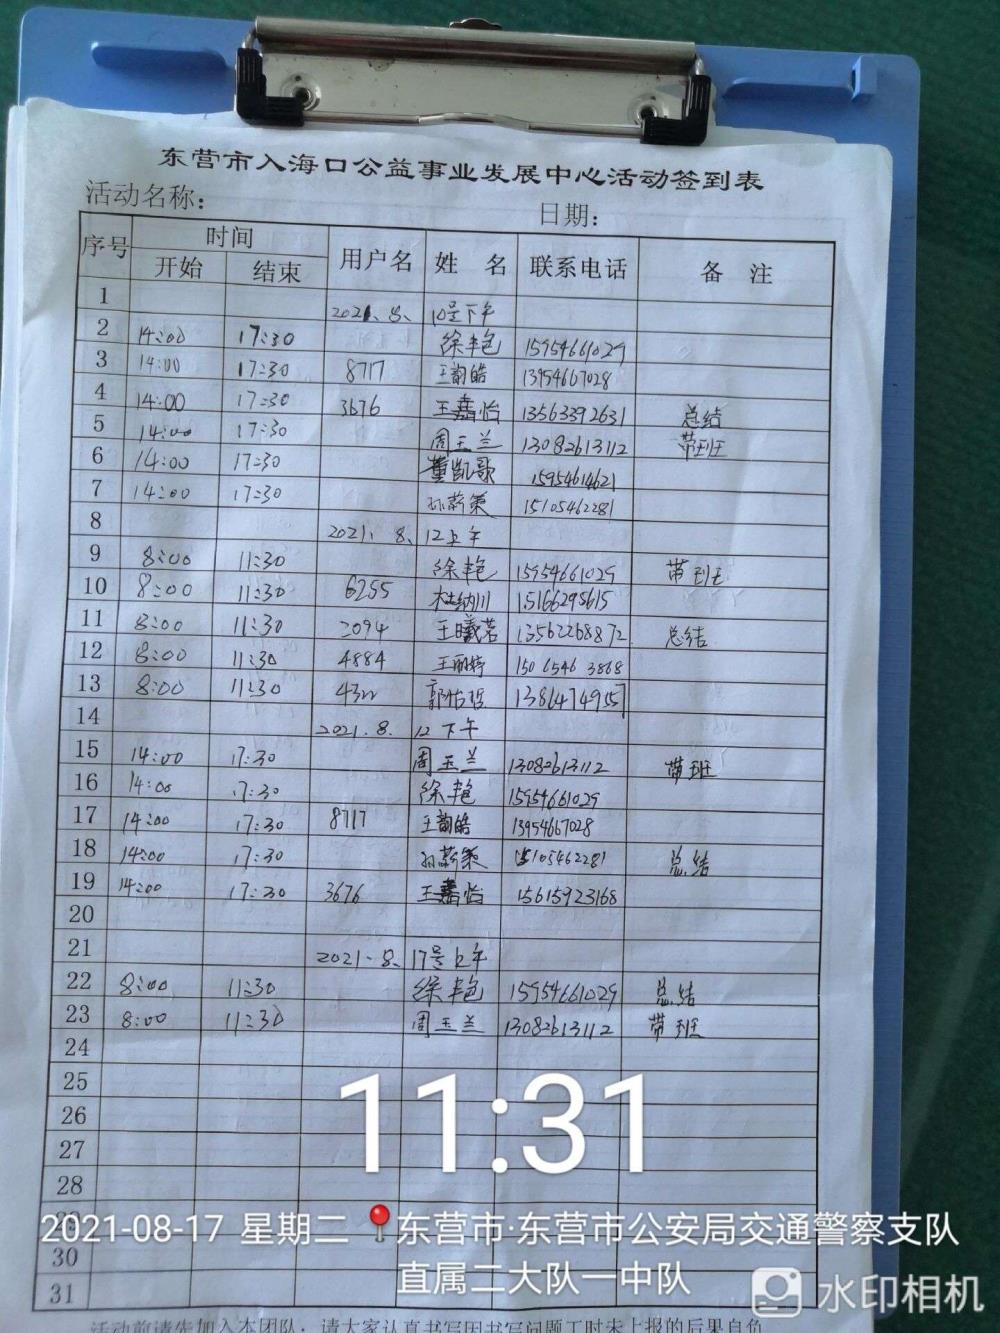 东营市入海口公益事业发展中心活动签到表
活动名称: 日期:
序号 时间 用户名 姓 名 联系电话 备 注
开始 结束
1 2021.8. 10号下午
2 14:00 17:30 徐艳 15954661029
3 14:00 17:30 8717 王韵皓 13954667028
4 14:00 17:30 3676 王嘉怡 13563392631 总结
5 14:00 17:30 周玉兰 13082613112 带班
6 14:00 17:30 董凯歌 15954614621
7 14:00 17:30 孙蕲策 15105462281
8 2021. 8. 12上午
9 8:00 11:30 徐艳 15954661029 带班
10 8:00 11:30 6255 杜纳川 15166295615
11 8:00 11:30 2094 王曦茗 13562268872 总结
12 8:00 11:30 4884 王丽婷 150 6546 3868
13 8:00 11:30 郭怡 13864749557
14 2021.8. 12 下午
15 14:00 17:30 周玉兰 13082613112 带班
16 14:00 17:30 徐艳 15954661029
17 14:00 17:30 8717 王韵皓 13954667028
18 14:00 17:30 孙蕲策 15105462281 总结
19 14:00 17:30 3676 王嘉怡 15615923168
20
21 2021.8. 17号上午
22 8:00 11:30 徐艳 15954661029 总结
23 8:00 11:30 周玉兰 13082613112 带班
24
25
26
27
28
29
30
31
11:31
2021-08-17 星期二 东营市·东营市公安局交通警察支队
直属二大队一中队
水印相机
活动前请先加入本团队,请大家认真书写因书写问题工时未上报的后果自负